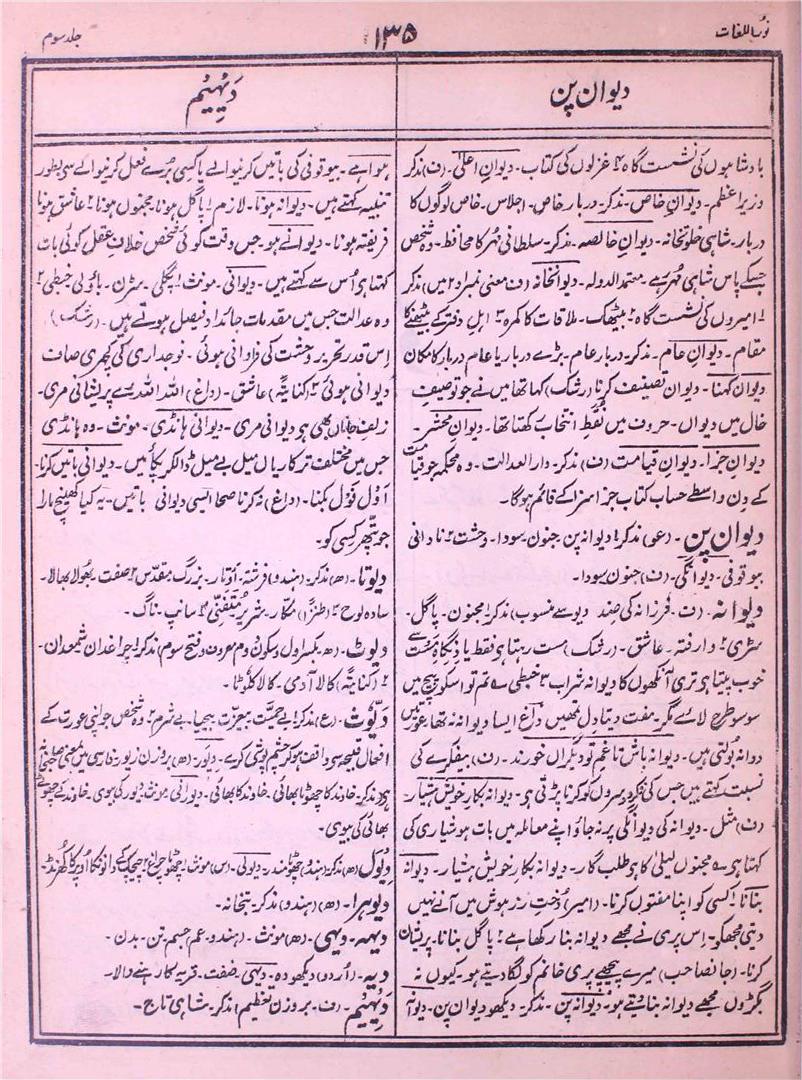 نورُ اللغات
۱۳۵
جلد سوم
دیوان پن
دَیہیُم
بادشاہوں کی نشست گاہ ۴ غزلوں کی کتاب۔ دیوانِ اعلیٰ۔ (ف) مذکر
وزیر اعظم۔ دیوانِ خاص۔ مذکر۔ دربار خاص۔ اجلاس۔ خاص لوگوں کا
دربار۔ شاہی خلوتخانہ۔ دیوانِ خالصہ۔ مذکر۔ سلطانی مُہر کا محافظ۔ وہ شخص
جسکے پاس شاہی مُہر رہے۔ معتمد الدولہ۔ دیوانخانہ (ف معنی نمبر ۱ و ۲ میں) مذکر
۱ امیروں کی نشست گاہ ۲ بیٹھک۔ ملاقات کا کمرہ ۳ اہلِ دفتر کے بیٹھنے کا
مقام۔ دیوانِ عام۔ مذکر۔ دربارِ عام۔ بڑے دربار یا عام دربار کا مکان
دیوان کہنا۔ دیوان تصنیف کرنا (رشک) کہا تھا میں نے جو توصیف
خال میں دیواں۔ حروف میں نُقَطِ انتخاب رکھتا تھا۔ دیوانِ محشر۔
دیوانِ جزا۔ دیوانِ قیامت (ف) مذکر۔ دار العدالت۔ وہ محکمہ جو قیامت
کے دِن واسطے حساب کتاب جزا سزا کے قائم ہوگا۔
دیوان پن۔ (عو) مذکر ۱ دیوانہ پن۔ جنون۔ سودا۔ وحشت ۲ نادانی
بیوقوفی۔ دیوانگی۔ (ف) جنون۔ سودا۔
دیوانہ۔ (ف۔ فرزانہ کی ضد۔ دیو سے منسوب) مذکر ۱ مجنون۔ پاگل۔
سڑی ۲ وارفتہ۔ عاشق۔ (رشک) مست رہتا ہی فقط یادِ نگاہِ مست سے
خوب پیتا ہی تری آنکھوں کا دیوانہ شراب ۳ خبطی۔ تم تو اسکو پیچ میں
سو سو طرح لائے مگر۔ مفت دیتا دل تمھیں داغ ایسا دیوانہ نہ تھا۔ عورتیں
دوانہ بولتی ہیں۔ دیوانہ باش تا غمِ تو دیگراں خورند۔ (ف) بیفکرے کی
نسبت کہتے ہیں جس کی فکر دوسروں کو کرنا پڑتی ہی۔ دیوانہ بکارِ خویش ہُشیار۔
(ف) مثل۔ دیوانہ کی دیوانگی پر نہ جاؤ اپنے معاملہ میں بات ہوشیاری کی
کہتا ہی۔ مجنوں لیلیٰ کا ہی طلب گار۔ دیوانہ بکارِ خویش ہشیار۔ دیوانہ
بنانا ۱ کسی کو اپنا مفتوں کرنا۔ (امیر) دُختِ رز ہوش میں آنے نہیں
دیتی مجھکو۔ اِس پری نے مجھے دیوانہ بنا رکھا ہے ۲ پاگل بنانا۔ پریشان
کرنا۔ (جانصاحب) میرے پیچھے پری خانم کو لگا دیتے ہو۔ کیوں نہ
بگڑوں مجھے دیوانہ بنا دیتے ہو۔ دیوانہ پن۔ مذکر۔ دیکھو دیوان پن۔ دیوانہ
ہوا ہے۔ بیوقوفی کی باتیں کرنیوالے یا کسی بُرے فعل کرنیوالے سے بطور
تنبیہ کہتے ہیں۔ دیوانہ ہونا۔ لازم ۱ پاگل ہونا۔ مجنوں ہونا ۲ عاشق ہونا
فریفتہ ہونا۔ دیوانے ہو۔ جس وقت کوئی شخص خلافِ عقل کوئی بات
کہتا ہی اُس سے کہتے ہیں۔ دیوانی۔ مونث ۱ پگلی۔ سڑن۔ باؤلی خبطی ۲
وہ عدالت جس میں مقدمات جائداد فیصل ہوتے ہیں۔ (رشک)
اِس قدر تحریر وحشت کی فراوانی ہوئی۔ فوجداری کی کچہری صاف
دیوانی ہوئی ۳ (کنایۃً) عاشق۔ (داغ) اللہ اللہ رے پریشانی مری۔
زلفِ جاناں بھی ہی دیوانی مری۔ دیوانی ہانڈی۔ مونث۔ وہ ہانڈی
جس میں مختلف ترکاریاں میل بے میل ڈالکر پکائیں۔ دیوانی باتیں کرنا
آؤل فَول بکنا۔ (داغ) نہ کرنا صحا ایسی دیوانی باتیں۔ یہ کیا کھینچ مارا
جو پتّھر کسی کو۔
دیوتا۔ (ھ) مذکر۔ (ہندو) فرشتہ۔ اَوتار۔ بزرگ۔ مقدّس ۲ صفت۔ بھولا بھالا۔
سادہ لوح ۳ (طنزاً) مکّار۔ شریر۔ مُتَفَنّی ۴ سانپ۔ ناگ۔
دیوٹ۔ (ھ۔ بکسر اول و سکون دوم معروف و فتح سوم) مذکر ۱ چراغدان شمعدان۔
۲ (کنایۃً) کالا آدمی۔ کالا کلوٹا۔
دیّوث۔ (ع) مذکر ۱ بے حمیّت۔ بیعزت۔ بیحیا۔ بے شرم ۲ وہ شخص جو اپنی عورت کے
افعال قبیحہ سے واقف ہو کر چشم پوشی کرے۔ دِیَور۔ (ھ) بر وزن زیور۔ فارسی میں بمعنی
ہی مذکر۔ خاوند کا چھوٹا بھائی۔ خاوند کا بھائی۔ دیورانی۔ مونث۔ دیور کی بیوی۔ خاوند کے چھوٹے
بھائی کی بیوی۔
دِیوَل (ھ) مذکر۔ (ہندو) چھوٹا مندر۔ دیولی۔ (س) مونث۔ چھوٹا چراغ ۲ چیچک کے دانو نکا اوپر کا کھُرنڈ۔
دیوہرا۔ (ھ) (ہندو) مذکر۔ بتخانہ۔
دیہہ۔ دیہی۔ (ھ) مونث۔ (ہندو۔ عم) جسم۔ تن۔ بدن۔
دیہ۔ (اُردو) دیکھو دہ۔ دیہی۔ صفت۔ قریہ کا رہنے والا۔
دَیہیُم (ف۔ بروزن تعظیم) مذکر۔ شاہی تاج۔